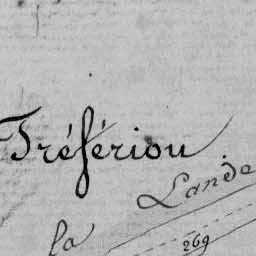 Tréfériou
Lande
la
269